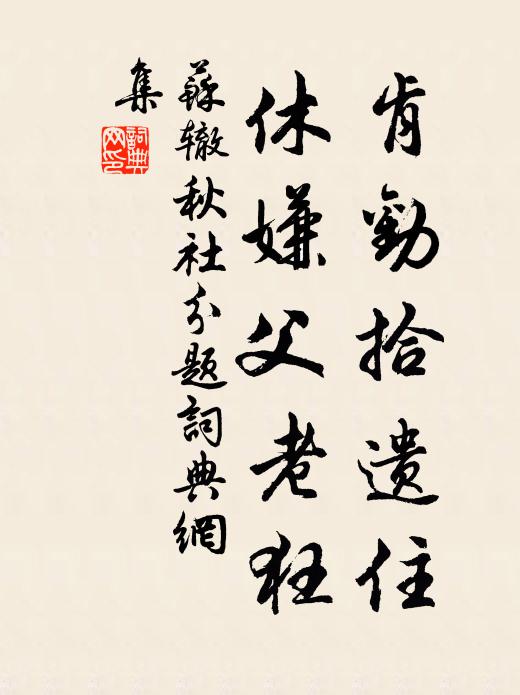 肯勸拾遗住
休嫌父老狂
蘇辙秋社分題詞典網
集
詞典網印